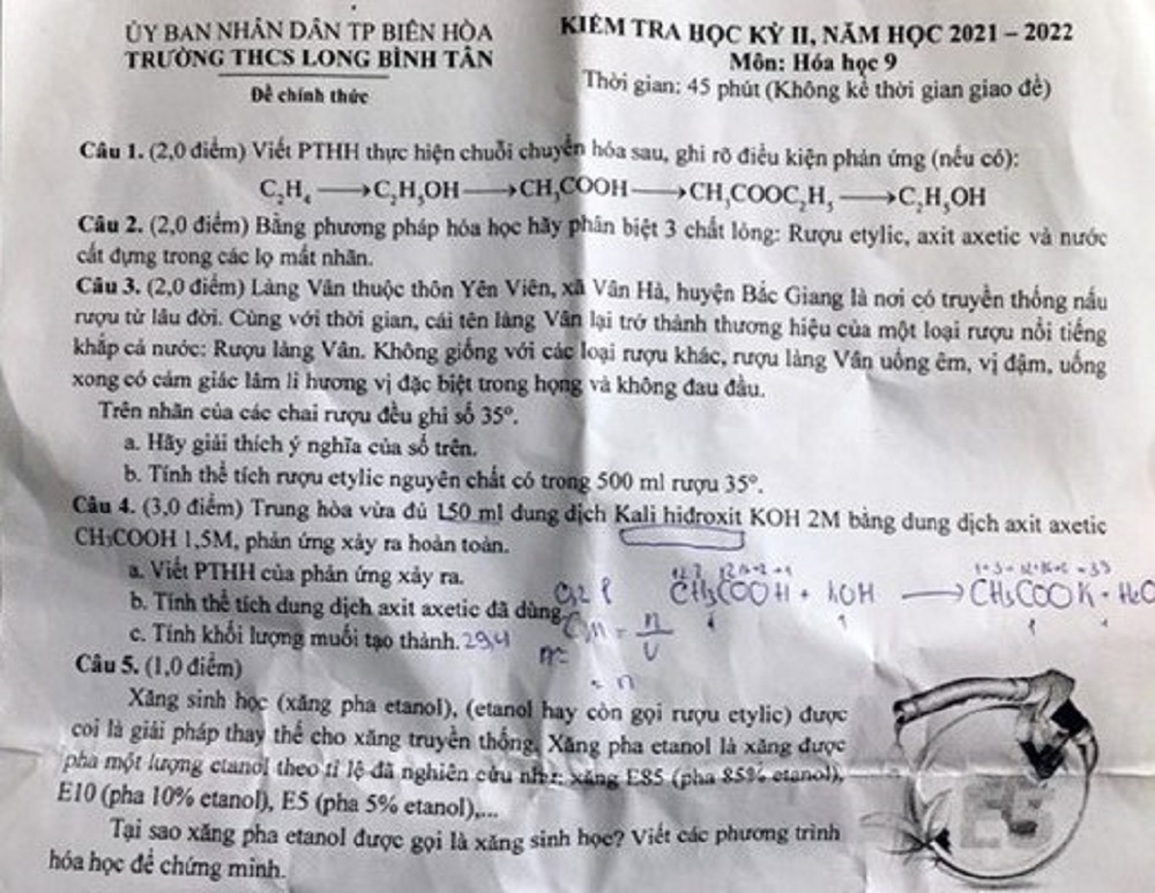 ỦY BAN NHÂN DÂN TP BIÊN HÒA
TRƯỜNG THCS LONG BÌNH TÂN
Đề chính thức
KIỂM TRA HỌC KỲ II, NĂM HỌC 2021 – 2022
Môn: Hóa học 9
Thời gian: 45 phút (Không kể thời gian giao đề)
Câu 1. (2,0 điểm) Viết PTHH thực hiện chuỗi chuyển hóa sau, ghi rõ điều kiện phản ứng (nếu có):
C₂H₄ ⟶ C₂H₅OH ⟶ CH₃COOH ⟶ CH₃COOC₂H₅ ⟶ C₂H₅OH
Câu 2. (2,0 điểm) Bằng phương pháp hóa học hãy phân biệt 3 chất lỏng: Rượu etylic, axit axetic và nước
cất đựng trong các lọ mất nhãn.
Câu 3. (2,0 điểm) Làng Vân thuộc thôn Yên Viên, xã Vân Hà, huyện Bắc Giang là nơi có truyền thống nấu
rượu từ lâu đời. Cùng với thời gian, cái tên làng Vân lại trở thành thương hiệu của một loại rượu nổi tiếng
khắp cả nước: Rượu làng Vân. Không giống với các loại rượu khác, rượu làng Vân uống êm, vị đậm, uống
xong có cảm giác lâm li hương vị đặc biệt trong họng và không đau đầu.
Trên nhãn của các chai rượu đều ghi số 35°.
a. Hãy giải thích ý nghĩa của số trên.
b. Tính thể tích rượu etylic nguyên chất có trong 500 ml rượu 35°.
Câu 4. (3,0 điểm) Trung hòa vừa đủ 150 ml dung dịch Kali hiđroxit KOH 2M bằng dung dịch axit axetic
CH₃COOH 1,5M, phản ứng xảy ra hoàn toàn.
a. Viết PTHH của phản ứng xảy ra.
CH₃COOH + KOH ⟶ CH₃COOK + H₂O
b. Tính thể tích dung dịch axit axetic đã dùng.
0,2 l
CM = n/V
c. Tính khối lượng muối tạo thành. 29,4
= n
Câu 5. (1,0 điểm)
Xăng sinh học (xăng pha etanol), (etanol hay còn gọi rượu etylic) được
coi là giải pháp thay thế cho xăng truyền thống. Xăng pha etanol là xăng được
pha một lượng etanol theo tỉ lệ đã nghiên cứu như: xăng E85 (pha 85% etanol),
E10 (pha 10% etanol), E5 (pha 5% etanol),...
Tại sao xăng pha etanol được gọi là xăng sinh học? Viết các phương trình
hóa học để chứng minh.
E5